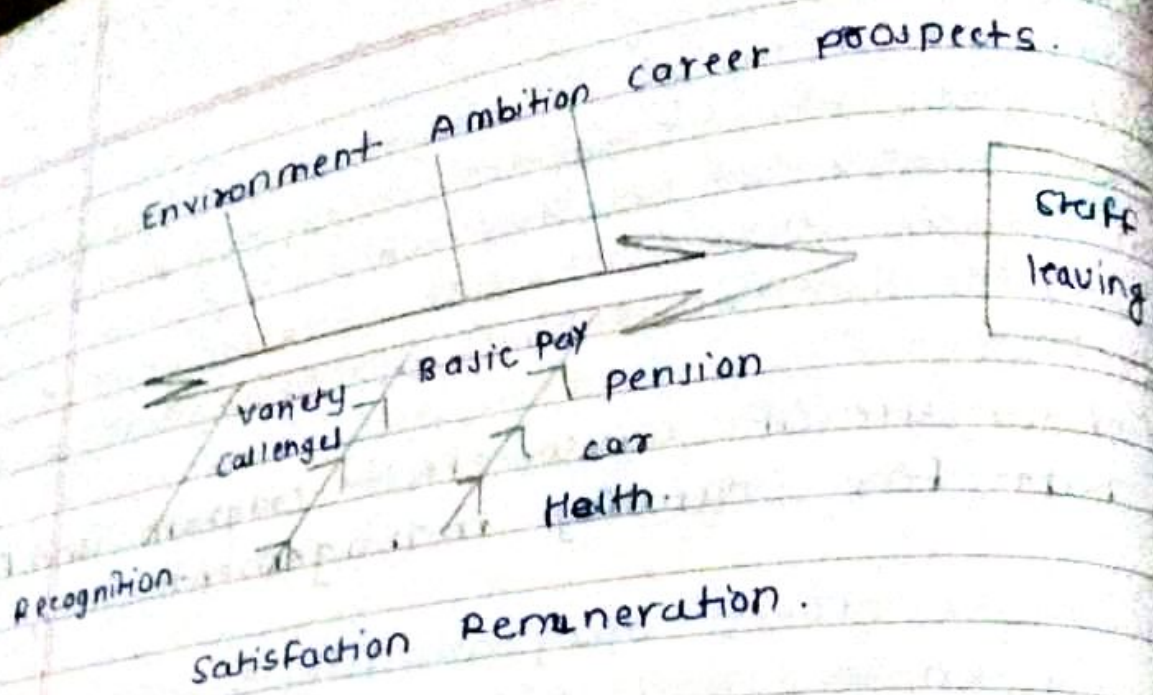 Environment Ambition career prospects.
Staff
leaving
Basic Pay
variety
Callenges
pension
car
Helth.
Recognition.
Satisfaction Remuneration.